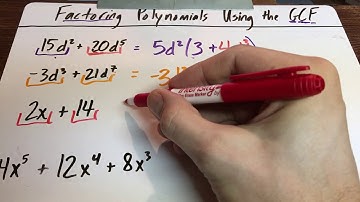 Factoring Polynomials Using the GCF
15d² + 20d⁵ = 5d²(3 + 4
-3d³ + 21d⁷ = -3
2x + 14
4x⁵ + 12x⁴ + 8x³